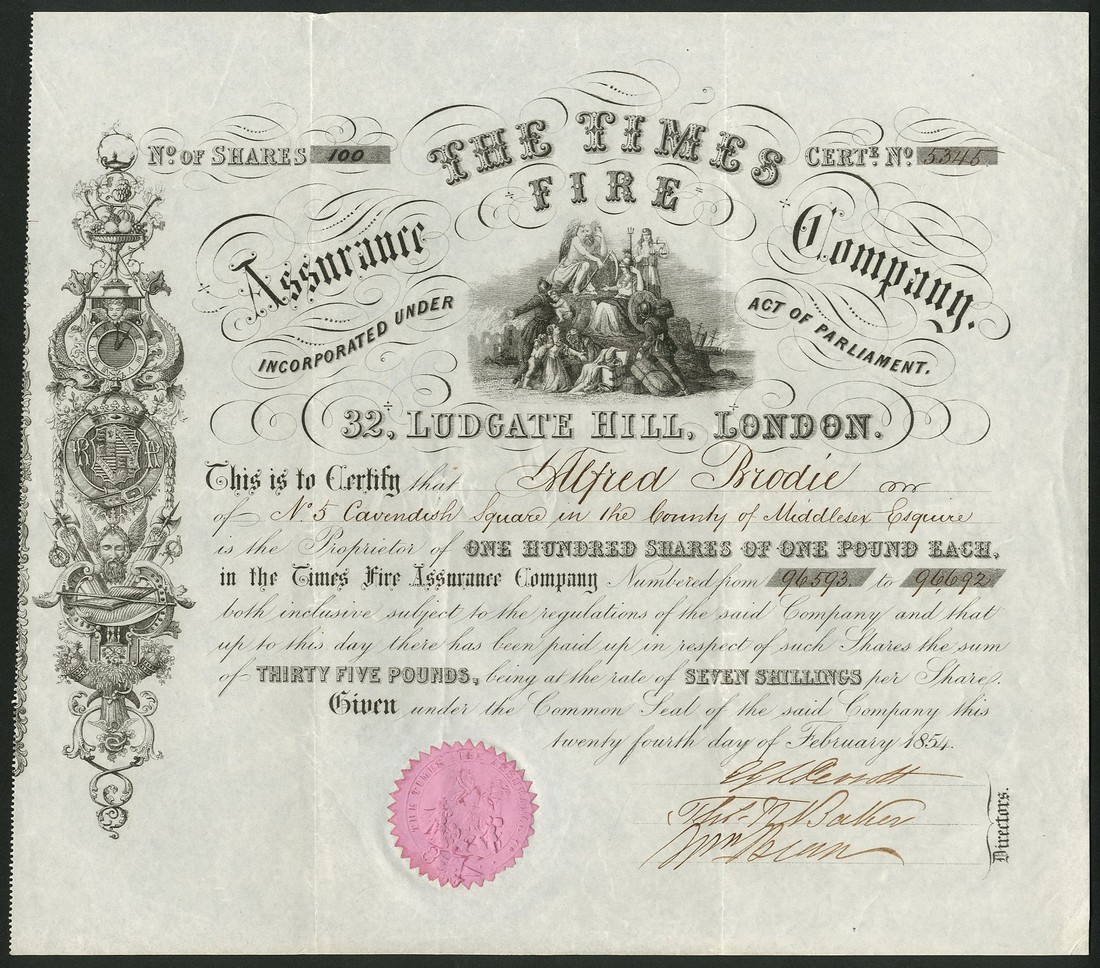 No. OF SHARES 100
CERTE. No. 5345
THE TIMES
FIRE
Assurance Company.
INCORPORATED UNDER ACT OF PARLIAMENT.
32, LUDGATE HILL, LONDON.
This is to Certify that Alfred Brodie
of No. 5 Cavendish Square in the County of Middlesex Esquire
is the Proprietor of ONE HUNDRED SHARES OF ONE POUND EACH,
in the Times Fire Assurance Company Numbered from 96593 to 96692
both inclusive subject to the regulations of the said Company and that
up to this day there has been paid up in respect of such Shares the sum
of THIRTY FIVE POUNDS, being at the rate of SEVEN SHILLINGS per Share.
Given under the Common Seal of the said Company this
twenty fourth day of February 1854.
Thos. Baker
Directors.